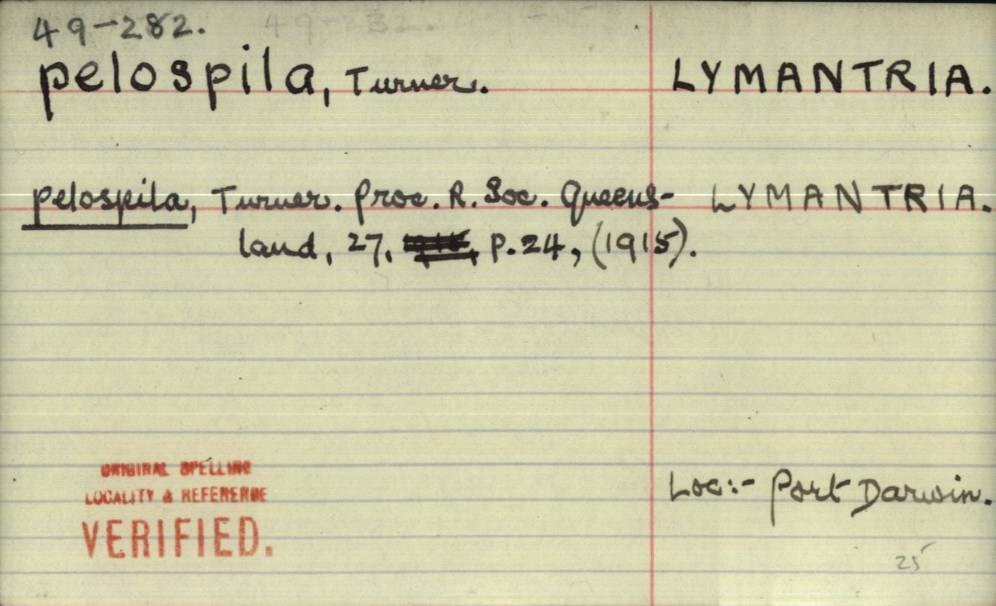 49-282.
pelospila, Turner. LYMANTRIA.
pelospila, Turner. Proc. R. Soc. Queens- LYMANTRIA.
land, 27, p.24, (1915).
ORIGINAL SPELLING
LOCALITY & REFERENCE
VERIFIED.
Loc:- Port Darwin.
25